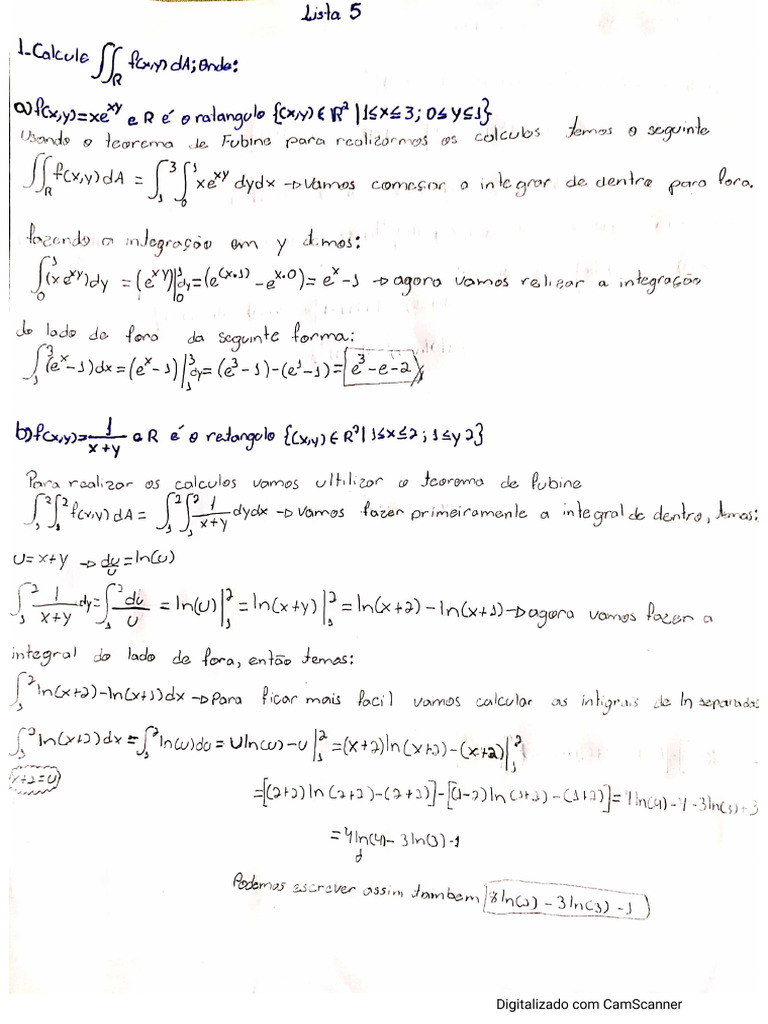 Lista 5
1-Calcule ∬_R f(x,y) dA; Onde:
a) f(x,y)=xe^{xy} e R é o ratangulo {(x,y) ∈ R² | 1≤x≤3; 0≤y≤1}
Usando o teorema de Fubine para realizarmos os calculos temos o seguinte
∬_R f(x,y) dA = ∫_1^3 ∫_0^1 xe^{xy} dydx → Vamos começar a integrar de dentro para fora.
fazendo a integração em y temos:
∫_0^1 (xe^{xy})dy = (e^{xy})|_0^1 dy = (e^{(x.1)} - e^{x.0}) = e^x - 1 → agora vamos relizar a integração
do lado de fora da seguinte forma:
∫_1^3 (e^x - 1)dx = (e^x - 1)|_1^3 dy = (e^3 - 1) - (e^1 - 1) = e^3 - e - 2
b) f(x,y) = 1/(x+y) e R é o retangulo {(x,y) ∈ R² | 1≤x≤2; 1≤y 2}
Para realizar os calculos vamos ultilizar o teorema de Fubine
∫_1^2 ∫_1^2 f(x,y) dA = ∫_1^2 ∫_1^2 1/(x+y) dydx → Vamos fazer primeiramente a integral de dentro, temos:
U = x+y → du/U = ln(u)
∫_1^2 1/(x+y) dy = ∫_1^2 du/U = ln(u)|_1^2 = ln(x+y)|_1^2 = ln(x+2) - ln(x+1) → agora vamos fazer a
integral do lado de fora, então temos:
∫_1^2 ln(x+2) - ln(x+1) dx → Para ficar mais facil vamos calcular as intigrais de ln separadas
∫_1^2 ln(x+2) dx = ∫_1^2 ln(u) du = U ln(u) - U |_1^2 = (x+2) ln(x+2) - (x+2) |_1^2
x+2=U
= [(2+2) ln (2+2) - (2+2)] - [(1-2) ln (1+2) - (1+2)] = 4 ln(4) - 4 - 3 ln(3) + 3
= 4 ln(4) - 3 ln(3) - 1
Podemos escrever assim tambem 8 ln(2) - 3 ln(3) - 1
Digitalizado com CamScanner